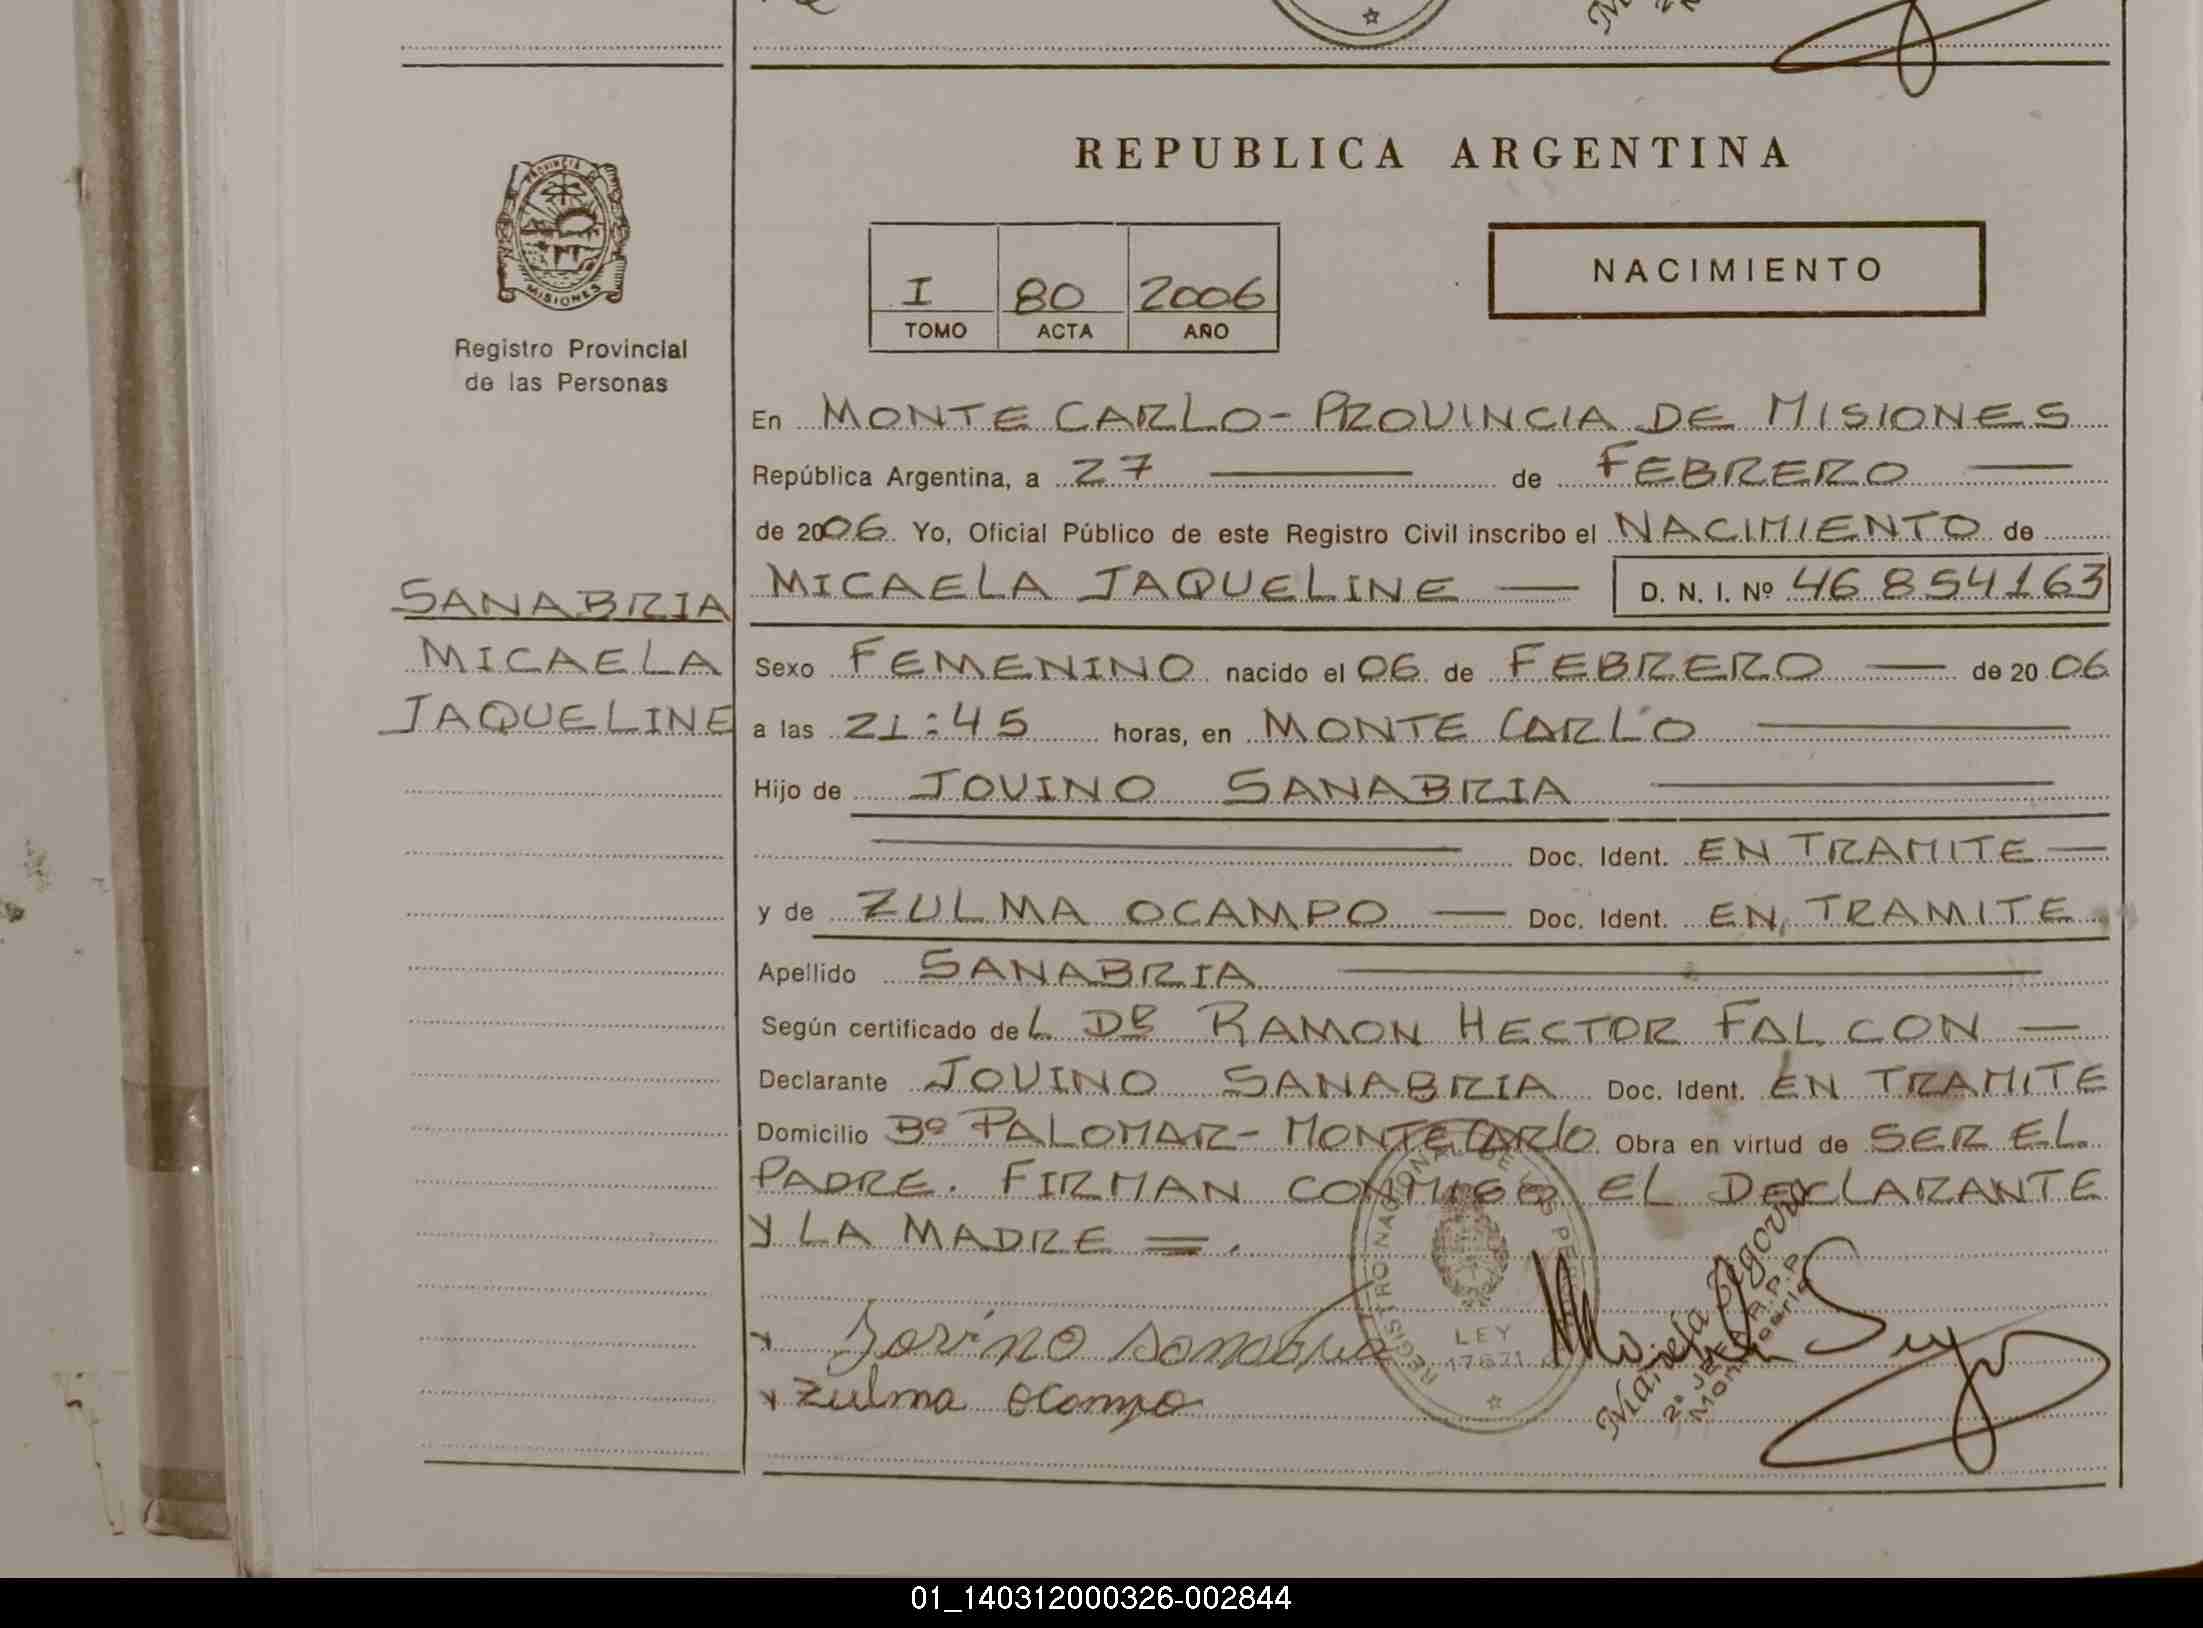 REPUBLICA ARGENTINA
PROVINCIA DE
MISIONES
Registro Provincial
de las Personas
I 80 2006
TOMO ACTA AÑO
NACIMIENTO
En MONTE CARLO - PROVINCIA DE MISIONES
República Argentina, a 27 de FEBRERO
de 2006. Yo, Oficial Público de este Registro Civil inscribo el NACIMIENTO de
MICAELA JAQUELINE D. N. I. Nº 46854163
SANABRIA
MICAELA
JAQUELINE
Sexo FEMENINO nacido el 06 de FEBRERO de 2006
a las 21:45 horas, en MONTE CARLO
Hijo de JOVINO SANABRIA
Doc. Ident. EN TRAMITE
y de ZULMA OCAMPO Doc. Ident. EN TRAMITE
Apellido SANABRIA
Según certificado de L Dr RAMON HECTOR FALCON
Declarante JOVINO SANABRIA Doc. Ident. EN TRAMITE
Domicilio Bº PALOMAR - MONTECARLO Obra en virtud de SER EL
PADRE. FIRMAN CONMIGO EL DECLARANTE
Y LA MADRE =.
x Jovino Sanabria
x Zulma Ocampo
REGISTRO NACIONAL DE LAS PER
LEY
17671
Mariela
01_140312000326-002844